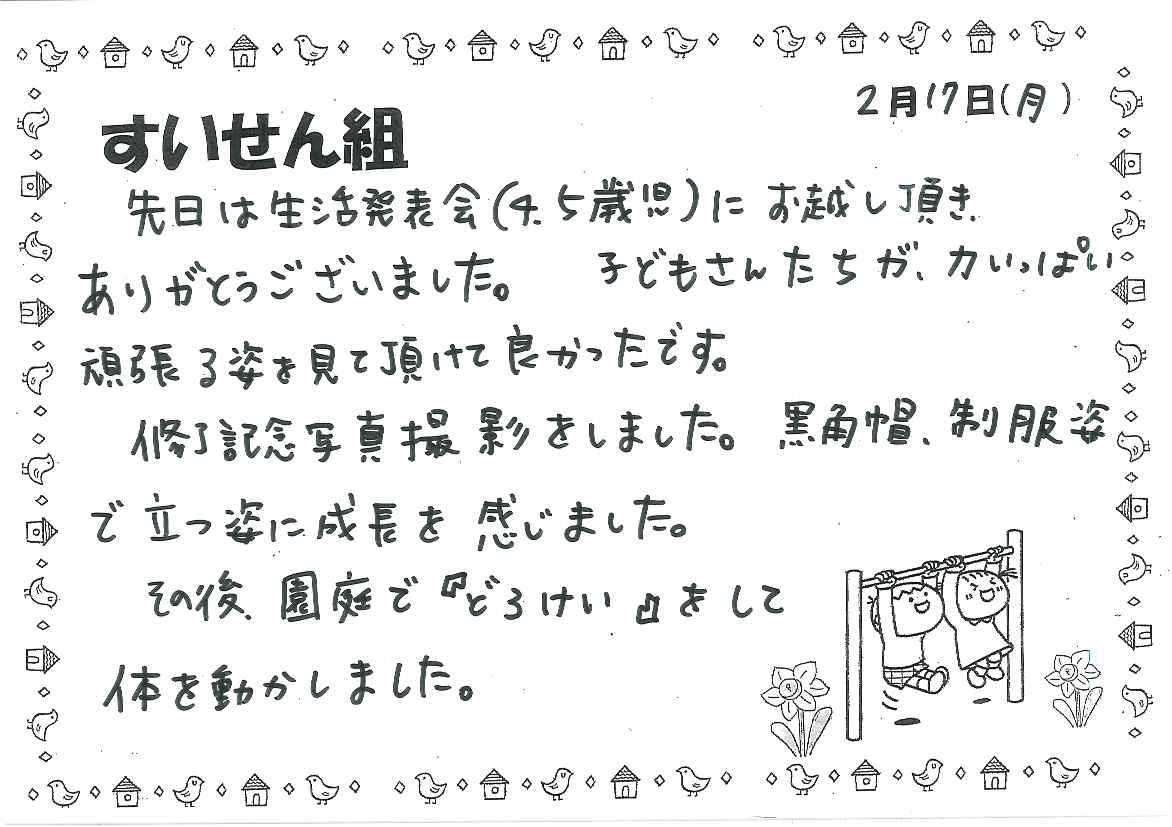 2月17日(月)
すいせん組
先日は生活発表会(4.5歳児)にお越し頂き、
ありがとうございました。 子どもさんたちが、力いっぱい
頑張る姿を見て頂けて良かったです。
修了記念写真撮影をしました。黒角帽、制服姿
で立つ姿に成長を感じました。
その後、園庭で『どろけい』をして
体を動かしました。